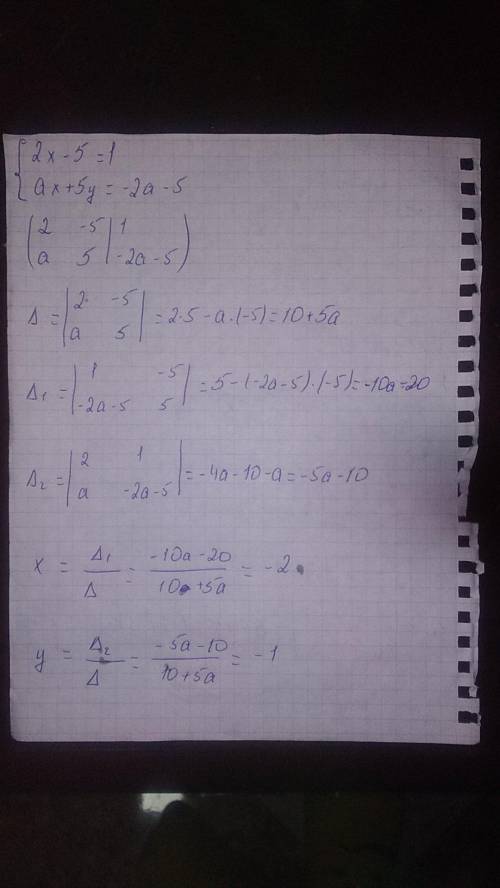 { 2x - 5 = 1
ax + 5y = -2a - 5
( 2 -5 | 1
a 5 | -2a - 5 )
Δ = | 2 -5
a 5 | = 2·5 - a·(-5) = 10 + 5a
Δ₁ = | 1 -5
-2a - 5 5 | = 5 - (-2a - 5)·(-5) = -10a - 20
Δ₂ = | 2 1
a -2a - 5 | = -4a - 10 - a = -5a - 10
x = Δ₁/Δ = (-10a - 20)/(10 + 5a) = -2
y = Δ₂/Δ = (-5a - 10)/(10 + 5a) = -1